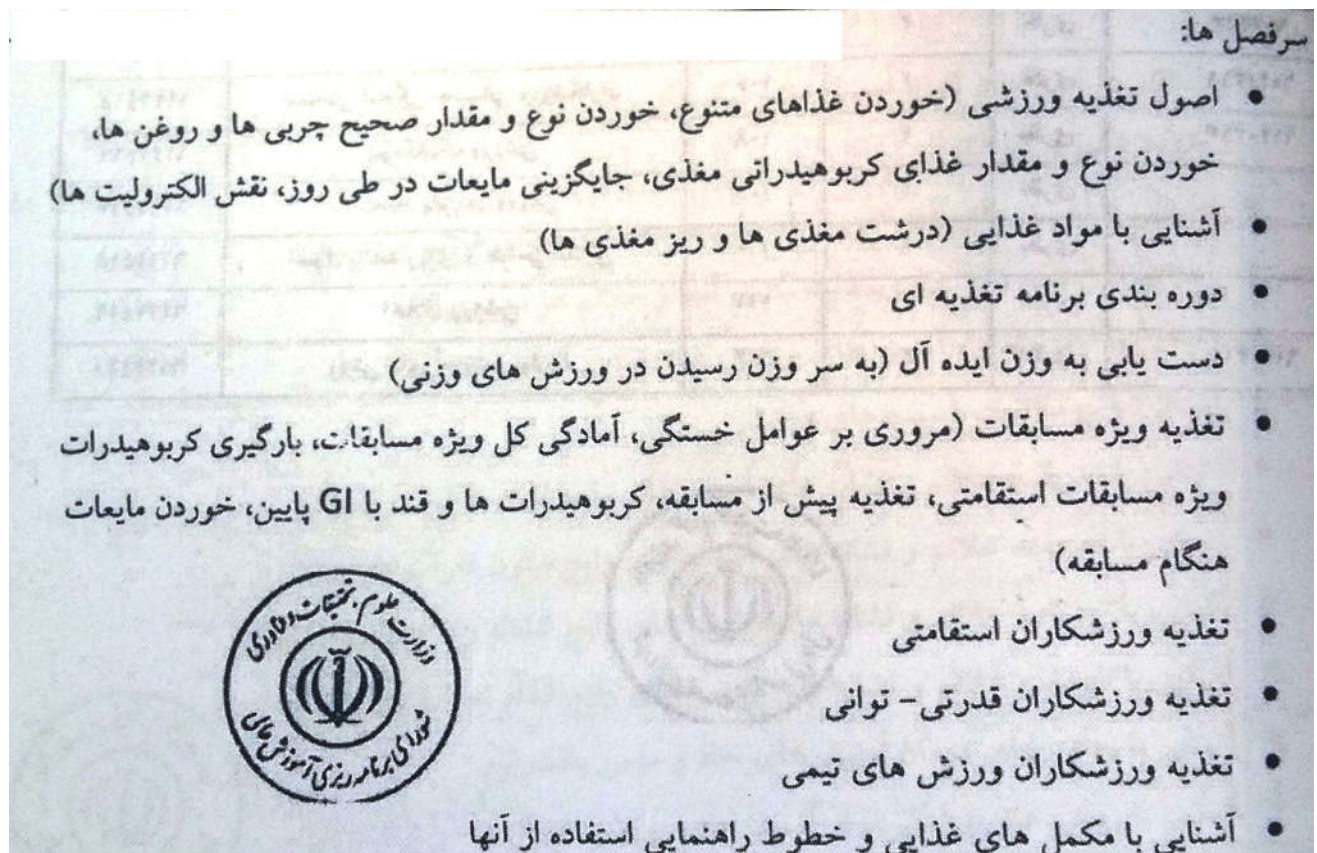 سرفصل ها:
• اصول تغذیه ورزشی (خوردن غذاهای متنوع، خوردن نوع و مقدار صحیح چربی ها و روغن ها،
خوردن نوع و مقدار غذای کربوهیدراتی مغذی، جایگزینی مایعات در طی روز، نقش الکترولیت ها)
• آشنایی با مواد غذایی (درشت مغذی ها و ریز مغذی ها)
• دوره بندی برنامه تغذیه ای
• دست یابی به وزن ایده آل (به سر وزن رسیدن در ورزش های وزنی)
• تغذیه ویژه مسابقات (مروری بر عوامل خستگی، آمادگی کل ویژه مسابقات، بارگیری کربوهیدرات
ویژه مسابقات استقامتی، تغذیه پیش از مسابقه، کربوهیدرات ها و قند با GI پایین، خوردن مایعات
هنگام مسابقه)
• تغذیه ورزشکاران استقامتی
• تغذیه ورزشکاران قدرتی- توانی
• تغذیه ورزشکاران ورزش های تیمی
• آشنایی با مکمل های غذایی و خطوط راهنمایی استفاده از آنها
وزارت علوم، تحقیقات و فناوری
شورای برنامه ریزی آموزش عالی